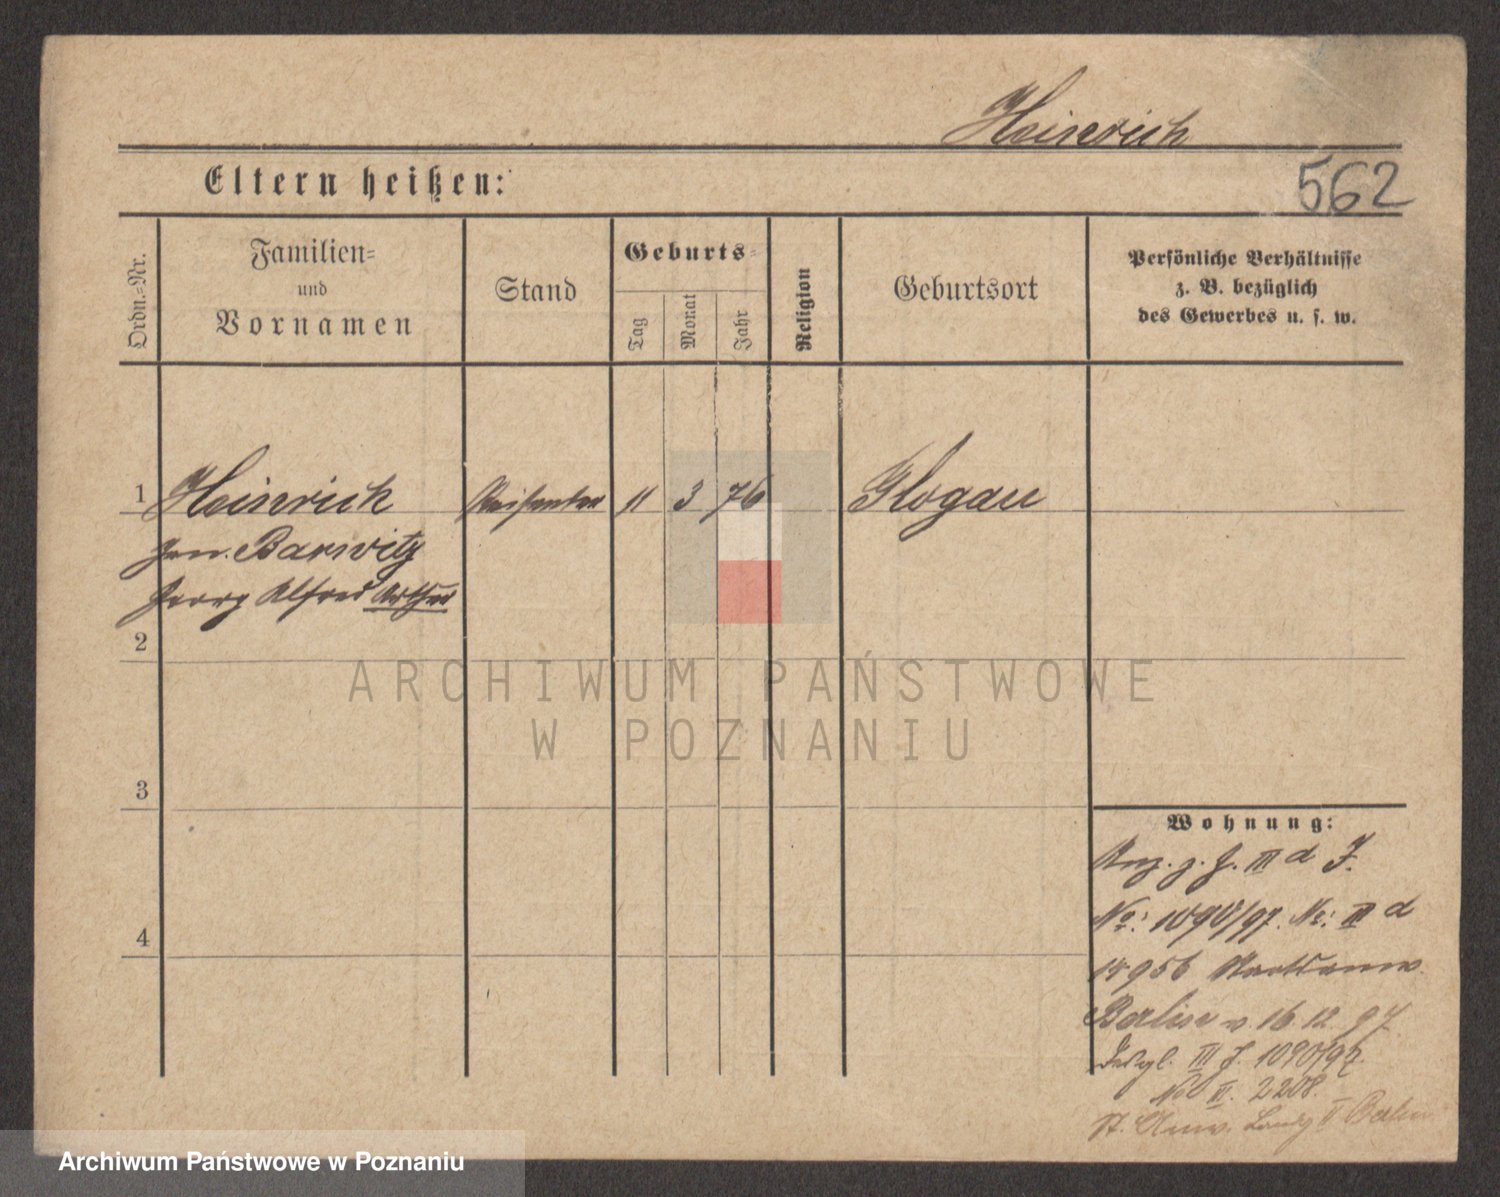 Heinrich
Eltern heißen:
562
Ordn.-Nr.
Familien-
und
Vornamen
Stand
Geburts-
Tag
Monat
Jahr
Religion
Geburtsort
Persönliche Verhältnisse
z. B. bezüglich
des Gewerbes u. s. w.
1 Heinrich Reisender 11 3 76 Glogau
gen. Barwitz
Georg Alfred Arthur
2
ARCHIWUM PAŃSTWOWE
W POZNANIU
3
Wohnung:
III d J.
No: 1090/97. No: III d
4
15956 Staatsanw.
Berlin v. 16.12.97.
Desgl. III J. 1090/97.
No II. 2208.
St. Anw. Landg II Berlin
Archiwum Państwowe w Poznaniu